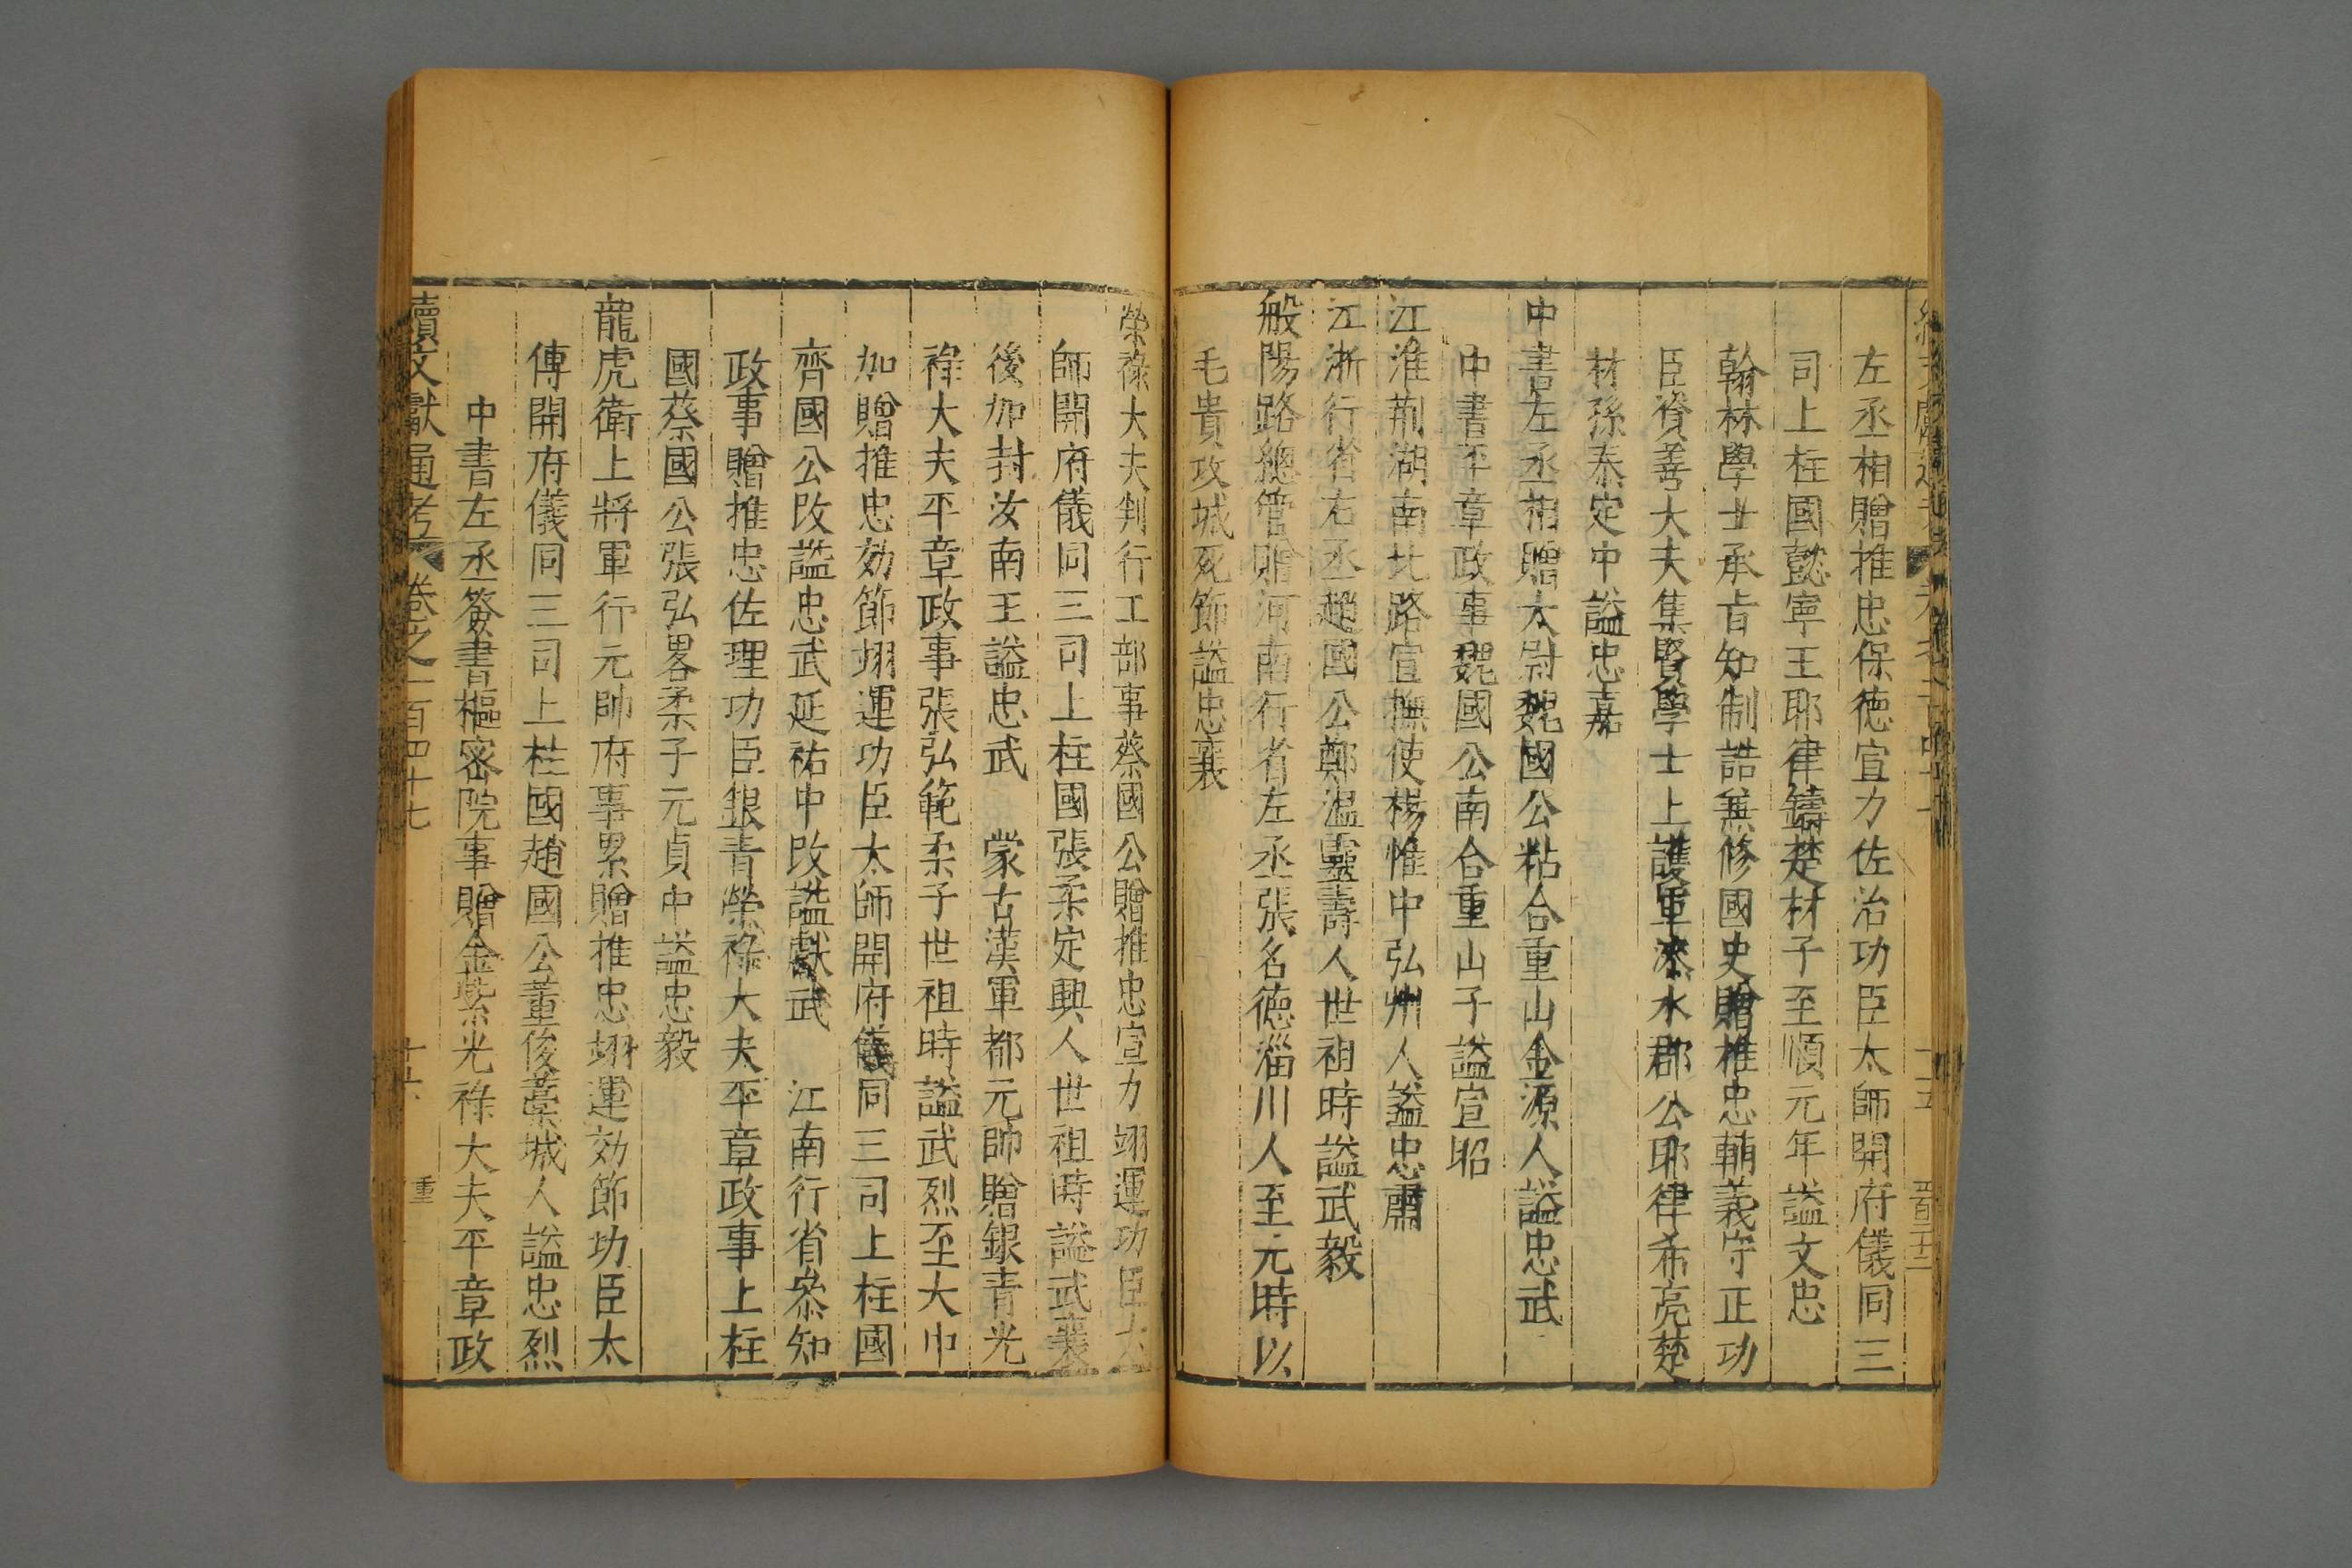 左丞相贈推忠保德宣力佐治功臣太師開府儀同三
司上柱國懿寧王耶律鑄楚材子至順元年謚文忠
翰林學士承旨知制誥兼修國史贈推忠輔義守正功
臣資善大夫集賢學士上護軍漆水郡公耶律希亮楚
材孫泰定中謚忠嘉
中書左丞相贈太尉魏國公粘合重山金源人謚忠武
中書平章政事魏國公南合重山子謚宣昭
江淮荆湖南北路宣撫使楊惟中弘州人謚忠肅
江浙行省右丞趙國公鄭溫靈壽人世祖時謚武毅
般陽路總管贈河南行省左丞張名德淄川人至元時以
毛貴攻城死節謚忠襄
榮祿大夫判行工部事蔡國公贈推忠宣力翊運功臣太
師開府儀同三司上柱國張柔定興人世祖時謚武襄
後加封汝南王謚忠武　蒙古漢軍都元帥贈銀青光
祿大夫平章政事張弘範柔子世祖時謚武烈至大中
加贈推忠効節翊運功臣太師開府儀同三司上柱國
齊國公改謚忠武延祐中改謚獻武　江南行省叅知
政事贈推忠佐理功臣銀青榮祿大夫平章政事上柱
國蔡國公張弘畧柔子元貞中謚忠毅
龍虎衛上將軍行元帥府事累贈推忠翊運効節功臣太
傅開府儀同三司上柱國趙國公董俊藁城人謚忠烈
中書左丞簽書樞密院事贈金紫光祿大夫平章政
續文獻通考 卷之一百四十七 十六 重